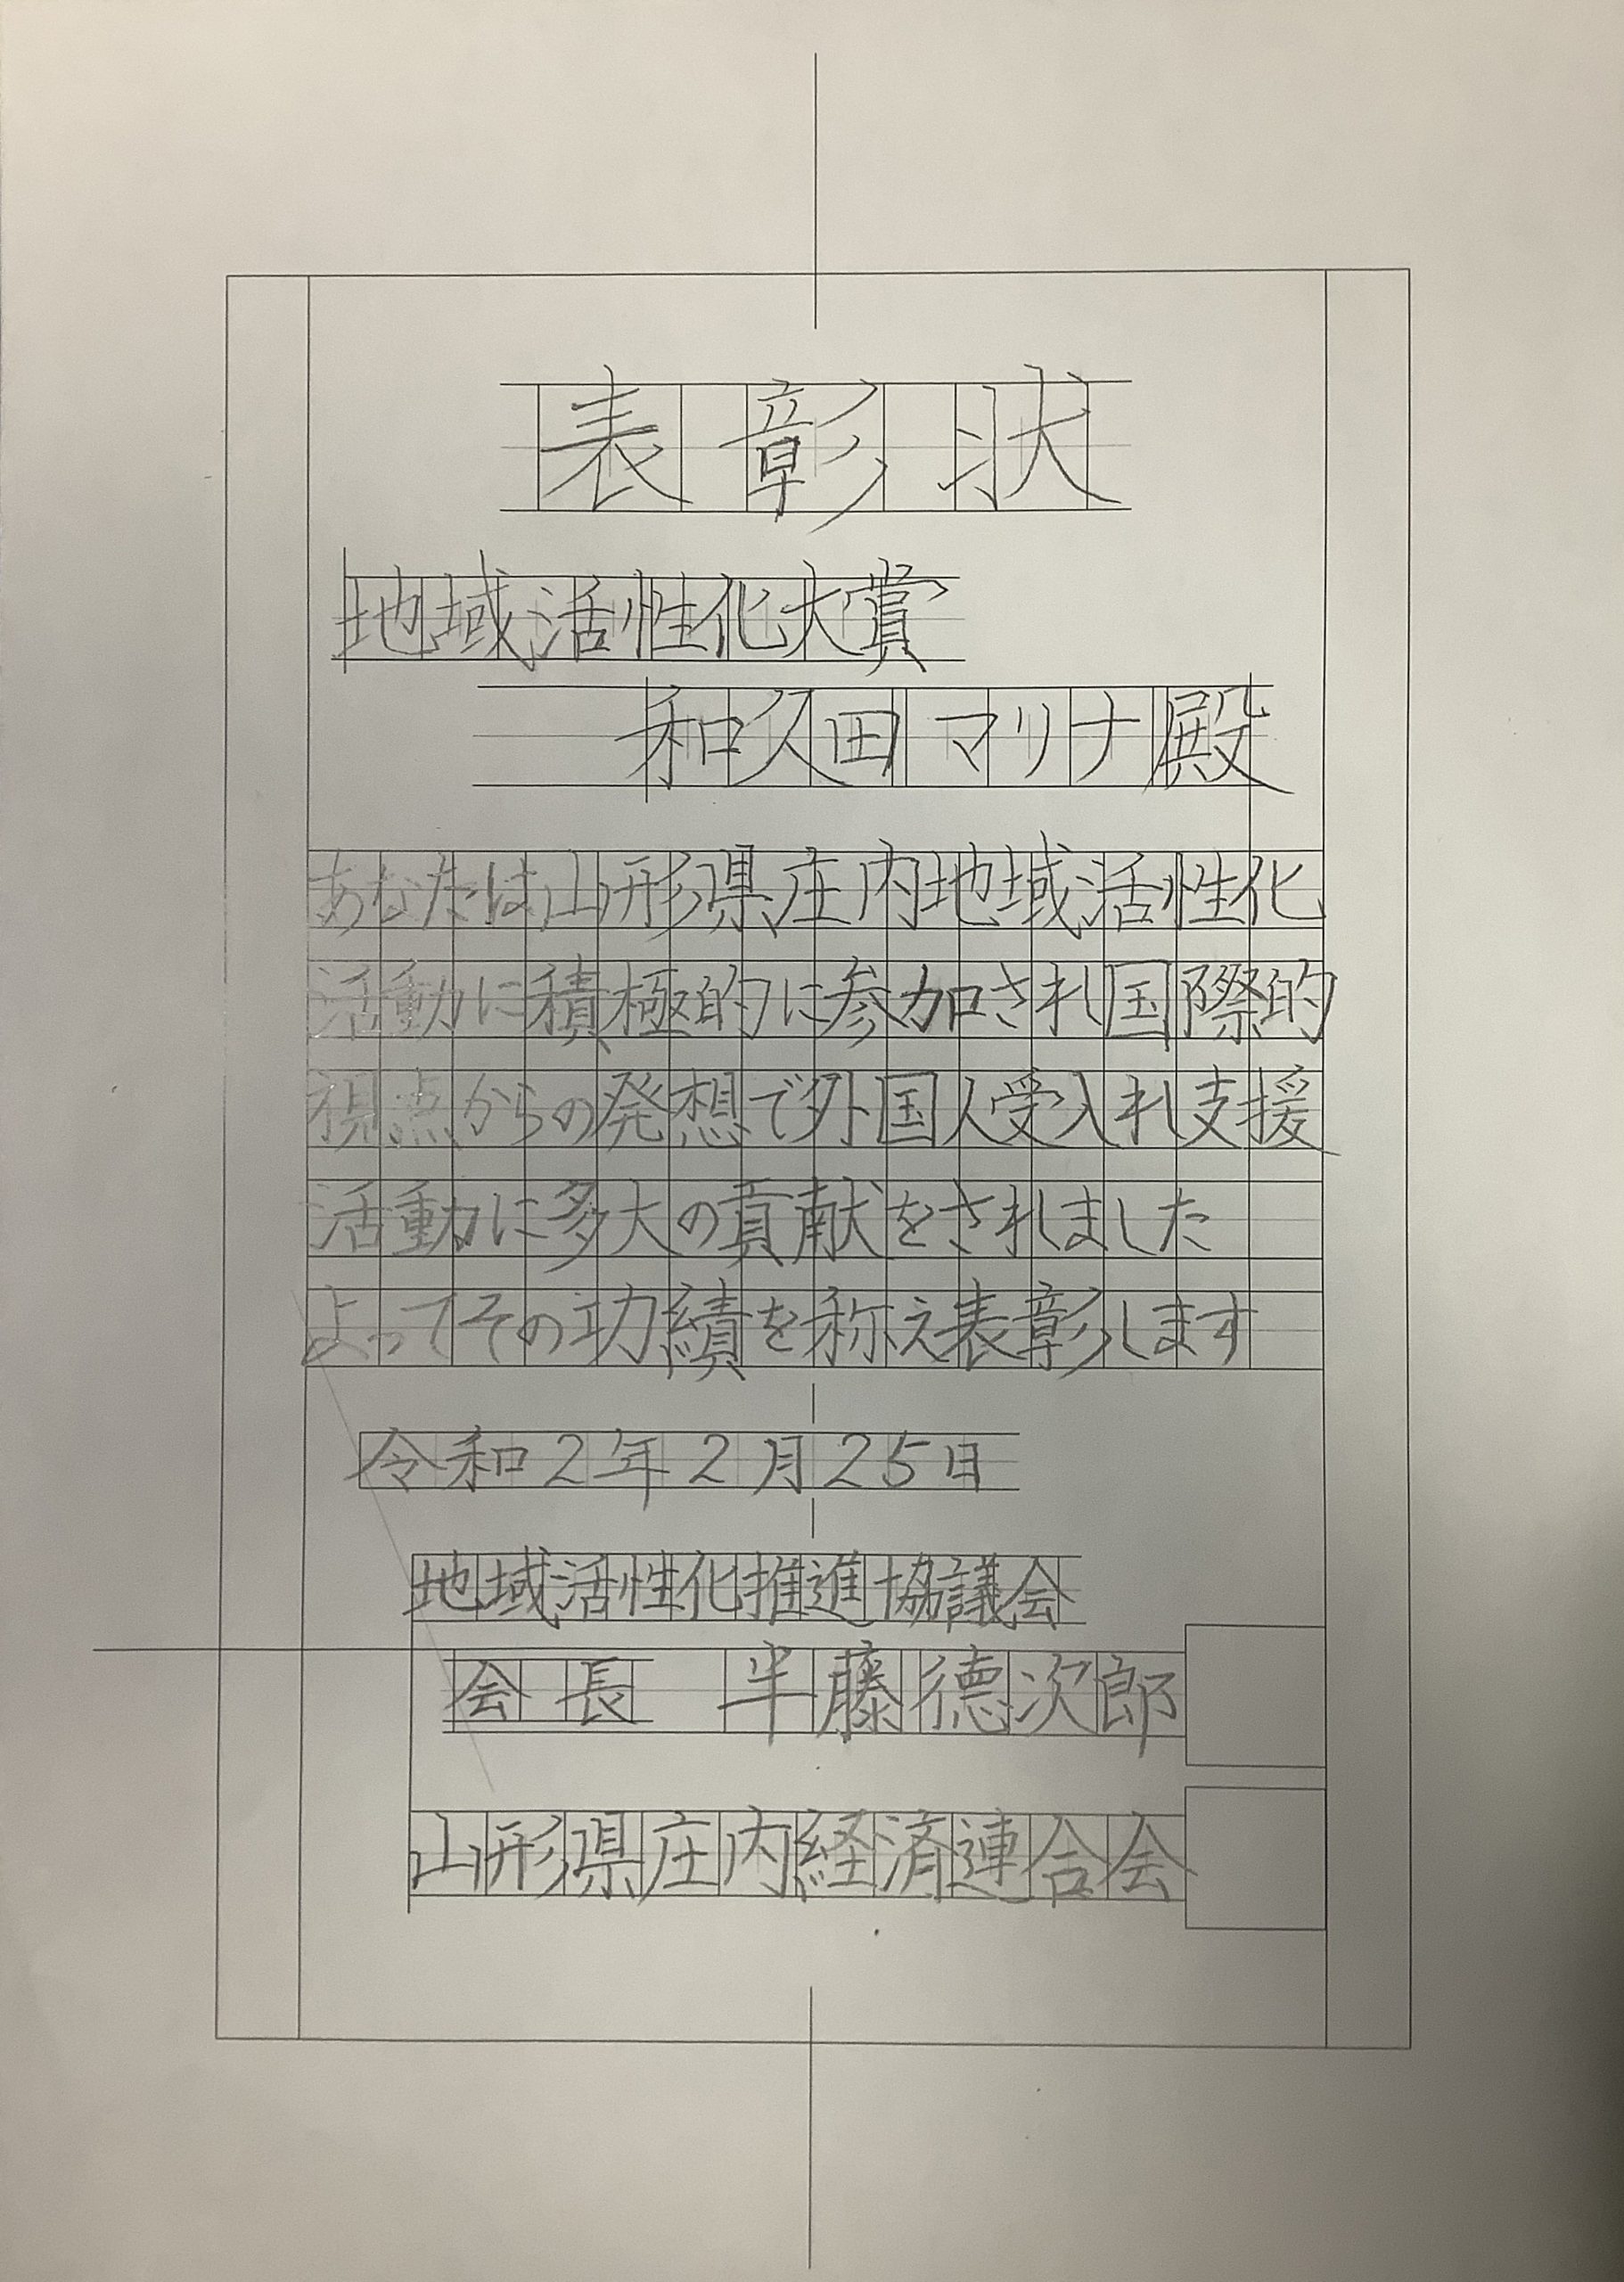 表彰状
地域活性化大賞
和久田マリナ殿
あなたは山形県庄内地域活性化
活動に積極的に参加され国際的
視点からの発想で外国人受入れ支援
活動に多大の貢献をされました
よってその功績を称え表彰します
令和2年2月25日
地域活性化推進協議会
会長 半藤徳次郎
山形県庄内経済連合会